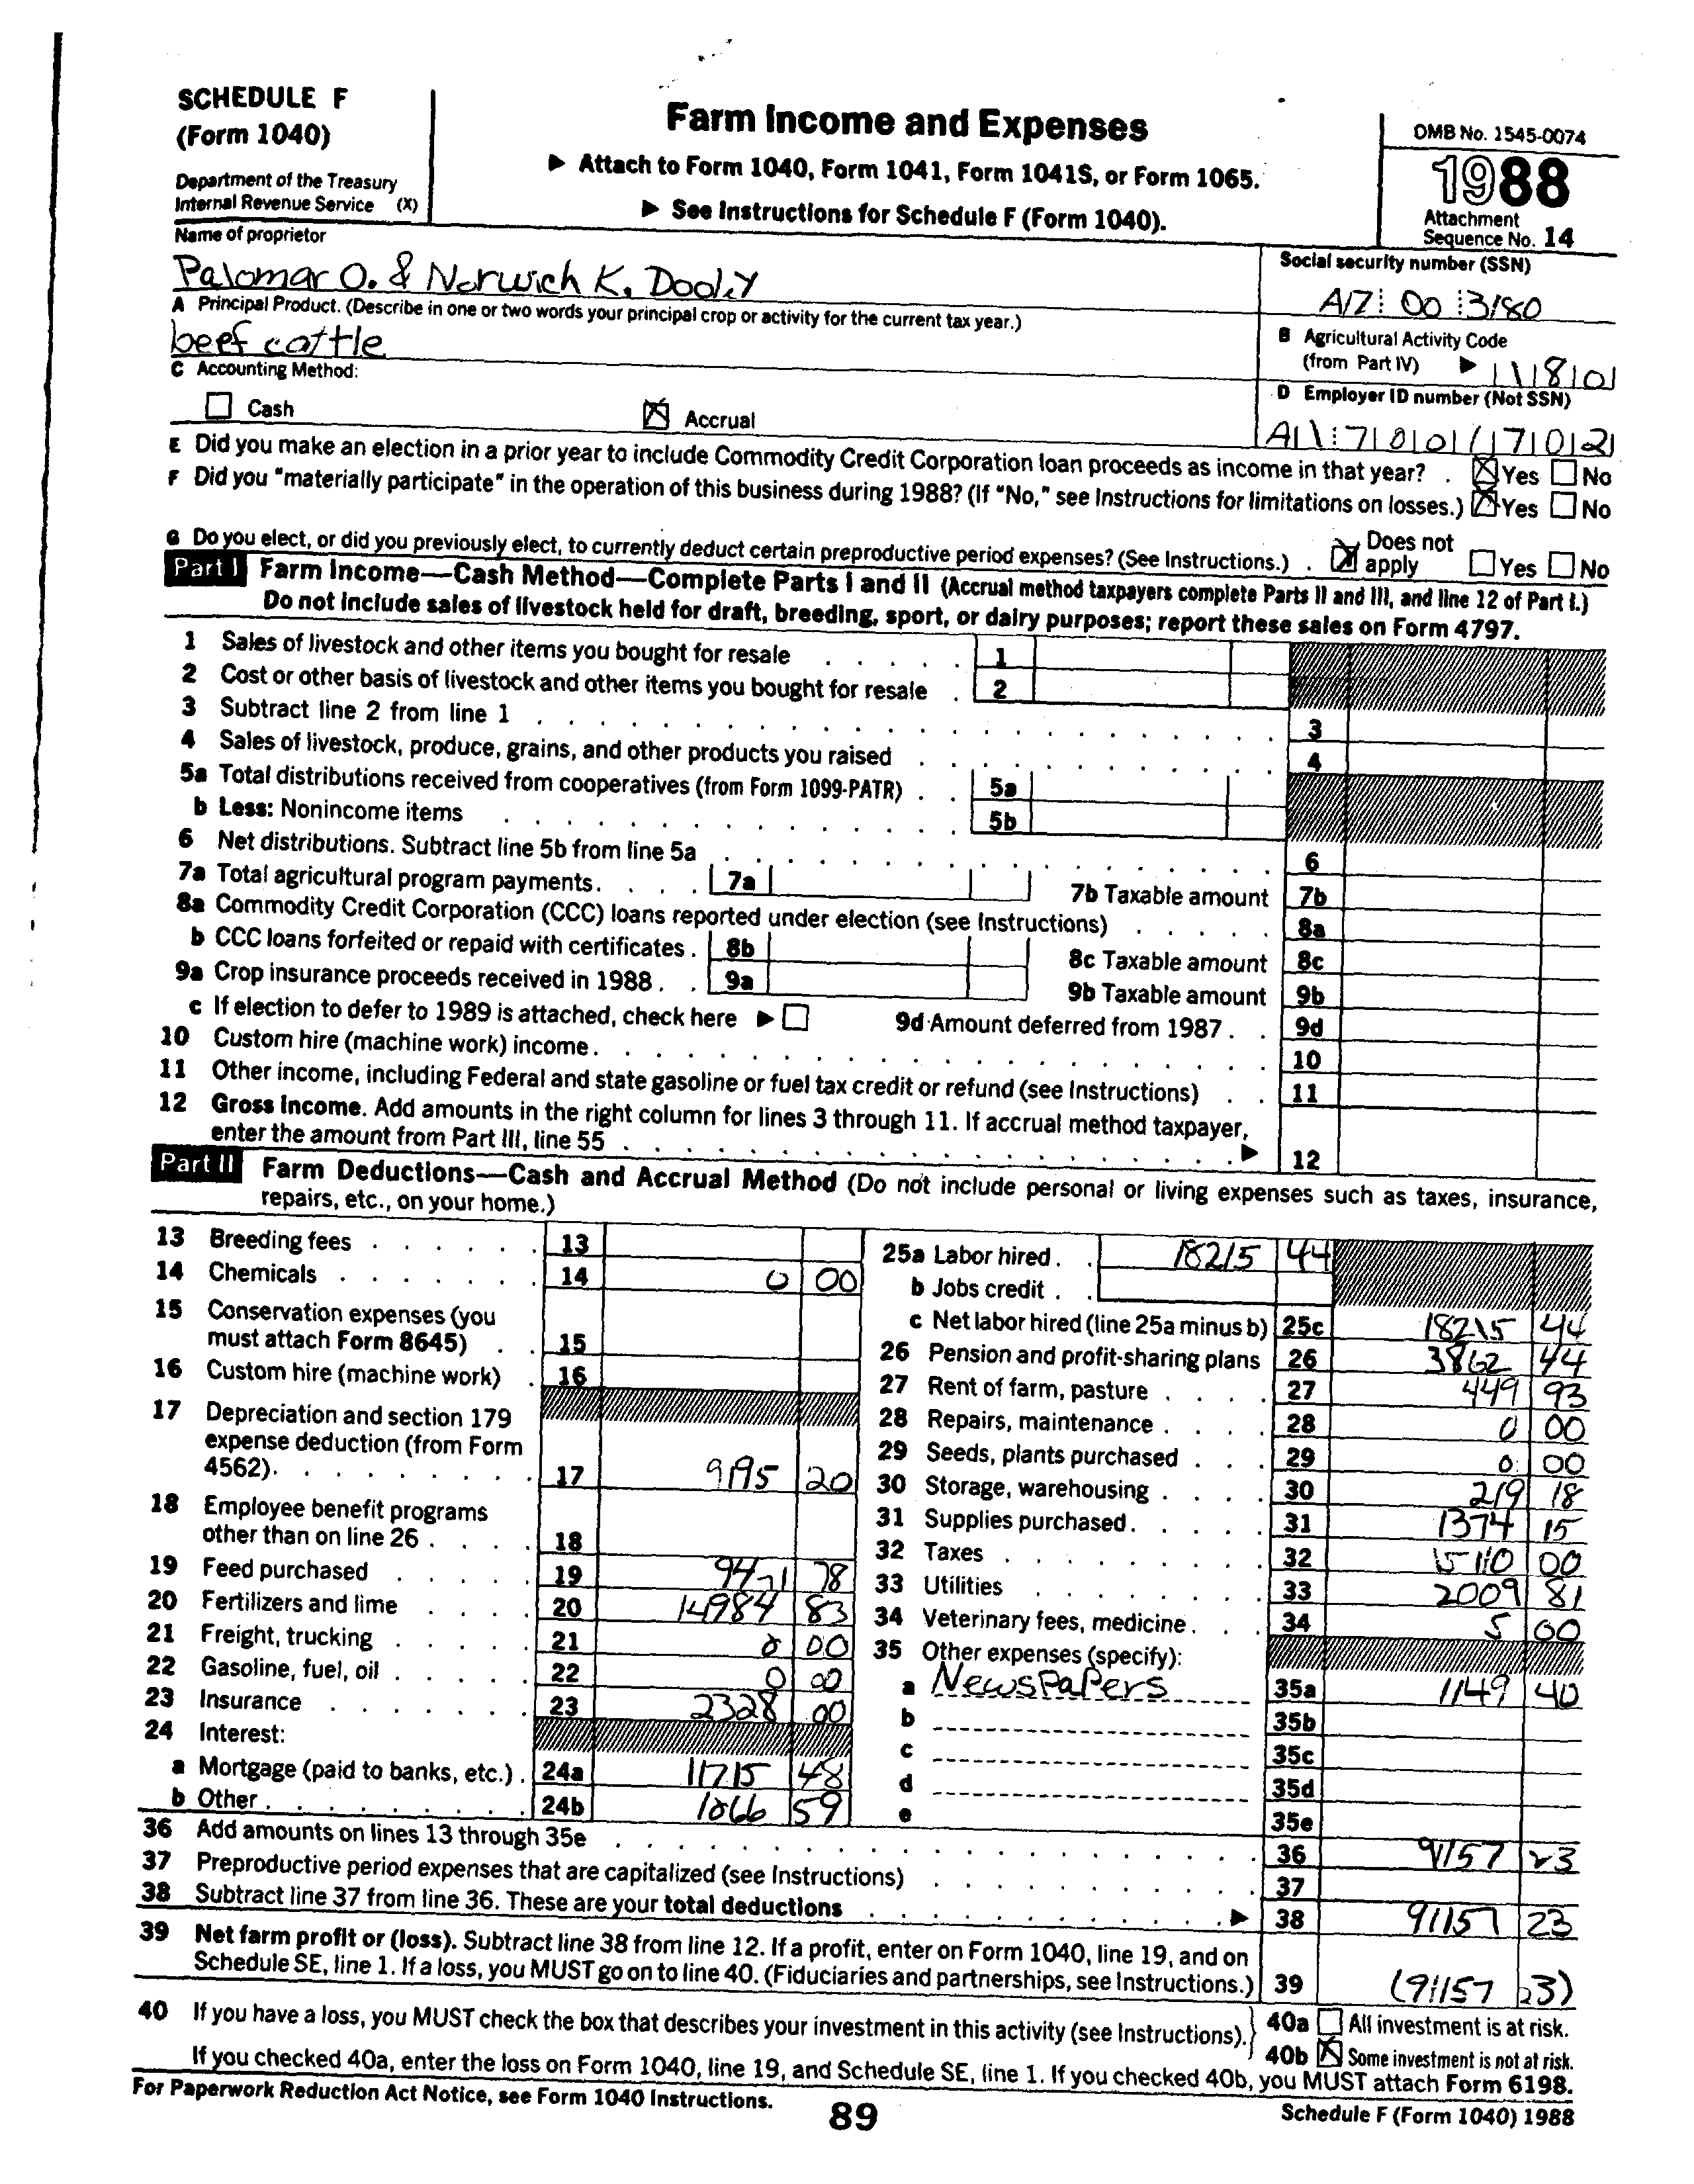 SCHEDULE F
(Form 1040)
Department of the Treasury
Internal Revenue Service (X)
Farm Income and Expenses
▶ Attach to Form 1040, Form 1041, Form 1041S, or Form 1065.
▶ See Instructions for Schedule F (Form 1040).
OMB No. 1545-0074
1988
Attachment
Sequence No. 14
Name of proprietor
Palomar O. & Norwich K. Dooly
Social security number (SSN)
00 3180
A Principal Product. (Describe in one or two words your principal crop or activity for the current tax year.)
beef cattle
B Agricultural Activity Code
(from Part IV) ▶
C Accounting Method:
Cash
Accrual
D Employer ID number (Not SSN)
E Did you make an election in a prior year to include Commodity Credit Corporation loan proceeds as income in that year? . Yes No
F Did you "materially participate" in the operation of this business during 1988? (If "No," see Instructions for limitations on losses.) Yes No
G Do you elect, or did you previously elect, to currently deduct certain preproductive period expenses? (See Instructions.) . Does not apply Yes No
Part I Farm Income—Cash Method—Complete Parts I and II (Accrual method taxpayers complete Parts II and III, and line 12 of Part I.)
Do not include sales of livestock held for draft, breeding, sport, or dairy purposes; report these sales on Form 4797.
1 Sales of livestock and other items you bought for resale . . . . . 1
2 Cost or other basis of livestock and other items you bought for resale . 2
3 Subtract line 2 from line 1 . . . . . 3
4 Sales of livestock, produce, grains, and other products you raised . . . . . 4
5a Total distributions received from cooperatives (from Form 1099-PATR) . . 5a
b Less: Nonincome items . . . . . 5b
6 Net distributions. Subtract line 5b from line 5a . . . . . 6
7a Total agricultural program payments. . . . . 7a 7b Taxable amount 7b
8a Commodity Credit Corporation (CCC) loans reported under election (see Instructions) . . . . . 8a
b CCC loans forfeited or repaid with certificates . 8b 8c Taxable amount 8c
9a Crop insurance proceeds received in 1988 . . 9a 9b Taxable amount 9b
c If election to defer to 1989 is attached, check here ▶ 9d Amount deferred from 1987 . . 9d
10 Custom hire (machine work) income . . . . . 10
11 Other income, including Federal and state gasoline or fuel tax credit or refund (see Instructions) . . 11
12 Gross Income. Add amounts in the right column for lines 3 through 11. If accrual method taxpayer,
enter the amount from Part III, line 55 . . . . . ▶ 12
Part II Farm Deductions—Cash and Accrual Method (Do not include personal or living expenses such as taxes, insurance,
repairs, etc., on your home.)
13 Breeding fees . . . . . . 13
14 Chemicals . . . . . . . 14 0 00
15 Conservation expenses (you
must attach Form 8645) . . 15
16 Custom hire (machine work) . 16
17 Depreciation and section 179
expense deduction (from Form
4562). . . . . . . . . 17 9195 20
18 Employee benefit programs
other than on line 26 . . . . 18
19 Feed purchased . . . . . 19 9471 78
20 Fertilizers and lime . . . . 20 14984 83
21 Freight, trucking . . . . . 21 0 00
22 Gasoline, fuel, oil . . . . . 22 0 00
23 Insurance . . . . . . . 23 2328 00
24 Interest:
a Mortgage (paid to banks, etc.) . 24a 11715 48
b Other . . . . . . . . . 24b 1866 59
25a Labor hired . . 18215 44
b Jobs credit . .
c Net labor hired (line 25a minus b) 25c 18215 44
26 Pension and profit-sharing plans 26 3862 44
27 Rent of farm, pasture . . . . 27 449 93
28 Repairs, maintenance . . . . 28 0 00
29 Seeds, plants purchased . . . 29 0 00
30 Storage, warehousing . . . . 30 219 18
31 Supplies purchased . . . . . 31 1374 15
32 Taxes . . . . . . . . . 32 15110 00
33 Utilities . . . . . . . . 33 2009 81
34 Veterinary fees, medicine . . . 34 5 00
35 Other expenses (specify):
a Newspapers 35a 1149 40
b 35b
c 35c
d 35d
e 35e
36 Add amounts on lines 13 through 35e . . . . . 36 91157 23
37 Preproductive period expenses that are capitalized (see Instructions) . . . . . 37
38 Subtract line 37 from line 36. These are your total deductions . . . . . ▶ 38 91157 23
39 Net farm profit or (loss). Subtract line 38 from line 12. If a profit, enter on Form 1040, line 19, and on
Schedule SE, line 1. If a loss, you MUST go on to line 40. (Fiduciaries and partnerships, see Instructions.) 39 (91157 23)
40 If you have a loss, you MUST check the box that describes your investment in this activity (see Instructions). 40a All investment is at risk.
40b Some investment is not at risk.
If you checked 40a, enter the loss on Form 1040, line 19, and Schedule SE, line 1. If you checked 40b, you MUST attach Form 6198.
For Paperwork Reduction Act Notice, see Form 1040 Instructions.
89
Schedule F (Form 1040) 1988